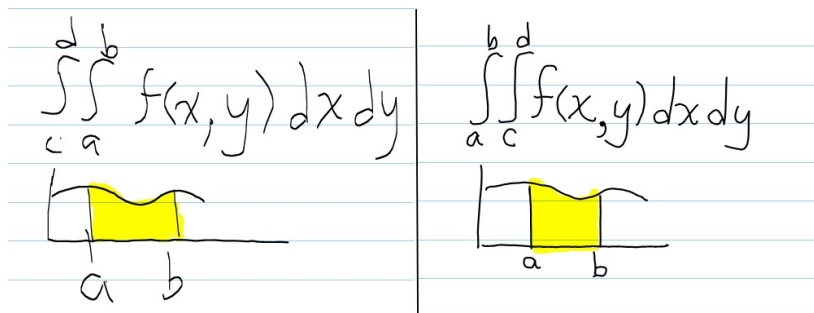 ∫_c^d ∫_a^b f(x,y) dx dy
a b
∫_a^b ∫_c^d f(x,y) dx dy
a b